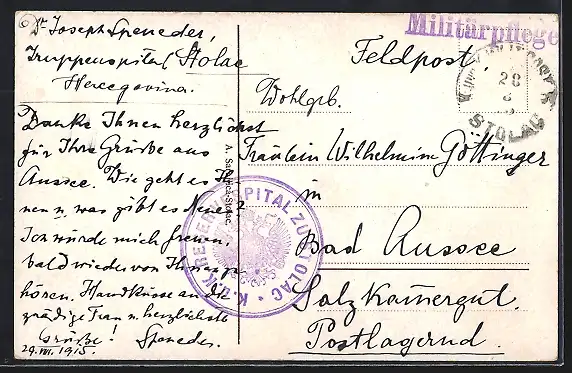 Dr Joseph Speneder,
Truppenspital Stolac
Hercegovina.
Danke Ihnen herzlichst
für Ihre Grüße aus
Aussee. Wie geht es Ih
nen u. was gibt es Neues?
Ich würde mich freuen,
bald wieder von Ihnen zu
hören. Handküsse an die
gnädige Frau u. herzlichste
Grüße! Speneder
29. VII. 1915.
Militärpflege
Feldpost.
Wohlgb.
Fräulein Wilhelmine Göttinger
in
Bad Aussee
Salzkammergut.
Postlagernd.
28
STOLAC
K.U.K. RESERVESPITAL ZU STOLAC